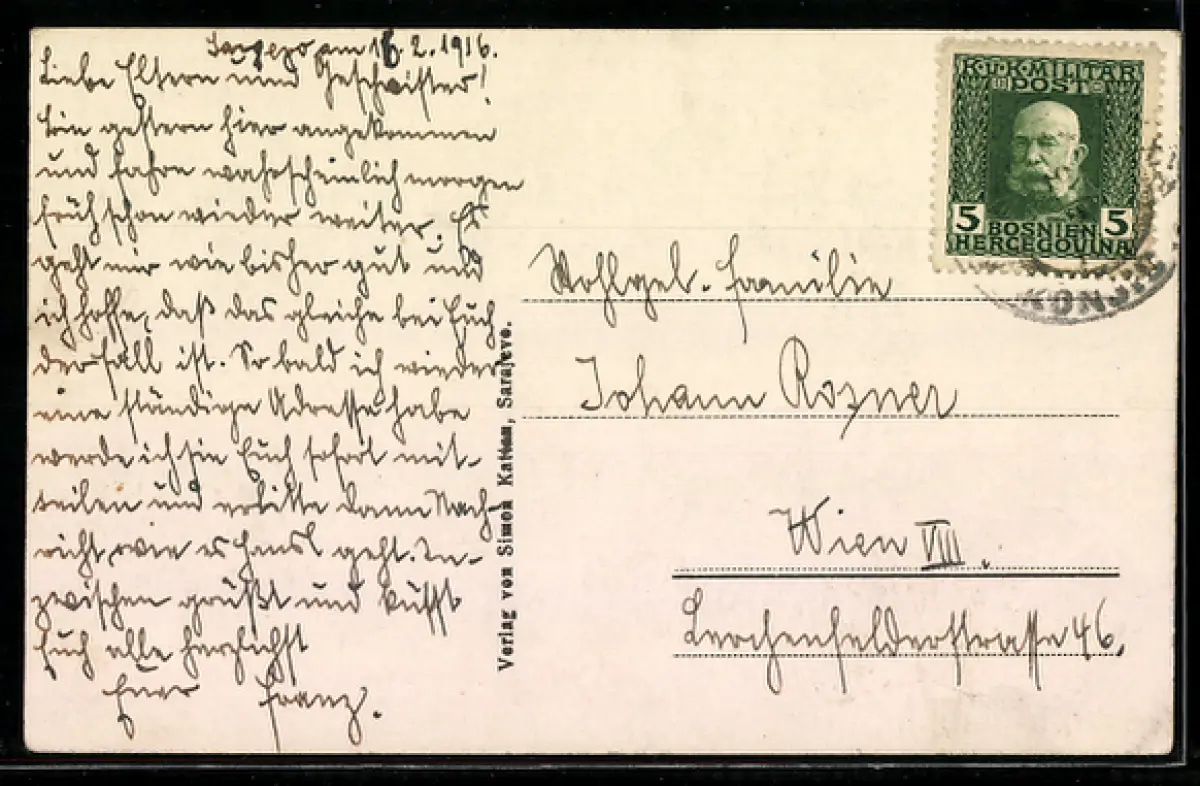 Sarajevo am 16.2.1916.
Liebe Eltern und Geschwister!
Bin gestern hier angekommen
und fahre wahrscheinlich morgen
früh schon wieder weiter. Es
geht mir wie bisher gut und
ich hoffe, daß das gleiche bei Euch
der Fall ist. So bald ich wieder
eine ständige Adresse habe
werde ich sie Euch sofort mit-
teilen und erbitte dann Nach-
richt wie es Hansl geht. In-
zwischen grüßt und küsst
Euch alle herzlichst
Euer Franz.
Verlag von Simon Kattan, Sarajevo.
K.U.K. MILITÄR
POST
5 5
BOSNIEN
HERCEGOVINA
KONJI
Wohlgeb. Familie
Johann Rozner
Wien VIII.
Lerchenfelderstrasse 46.